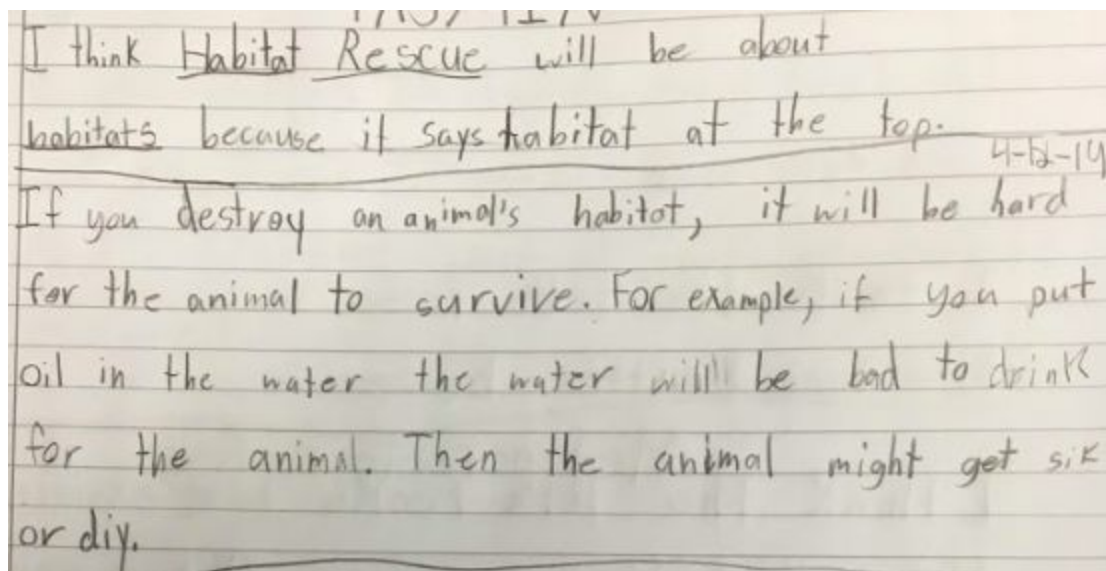 I think Habitat Rescue will be about
habitats because it says habitat at the top.
4-12-14
If you destroy an animal's habitat, it will be hard
for the animal to survive. For example, if you put
oil in the water the water will be bad to drink
for the animal. Then the animal might get sik
or diy.